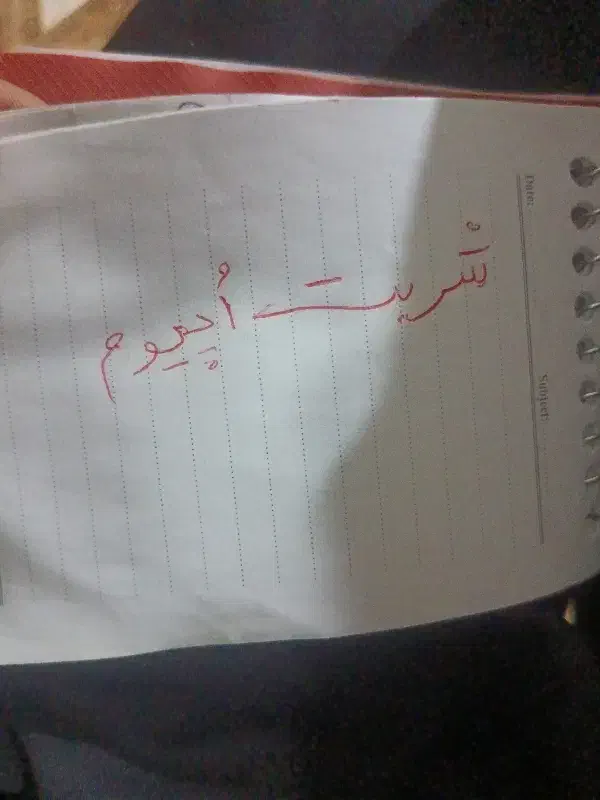 Date:
Subject:
تُريت أُپيوم